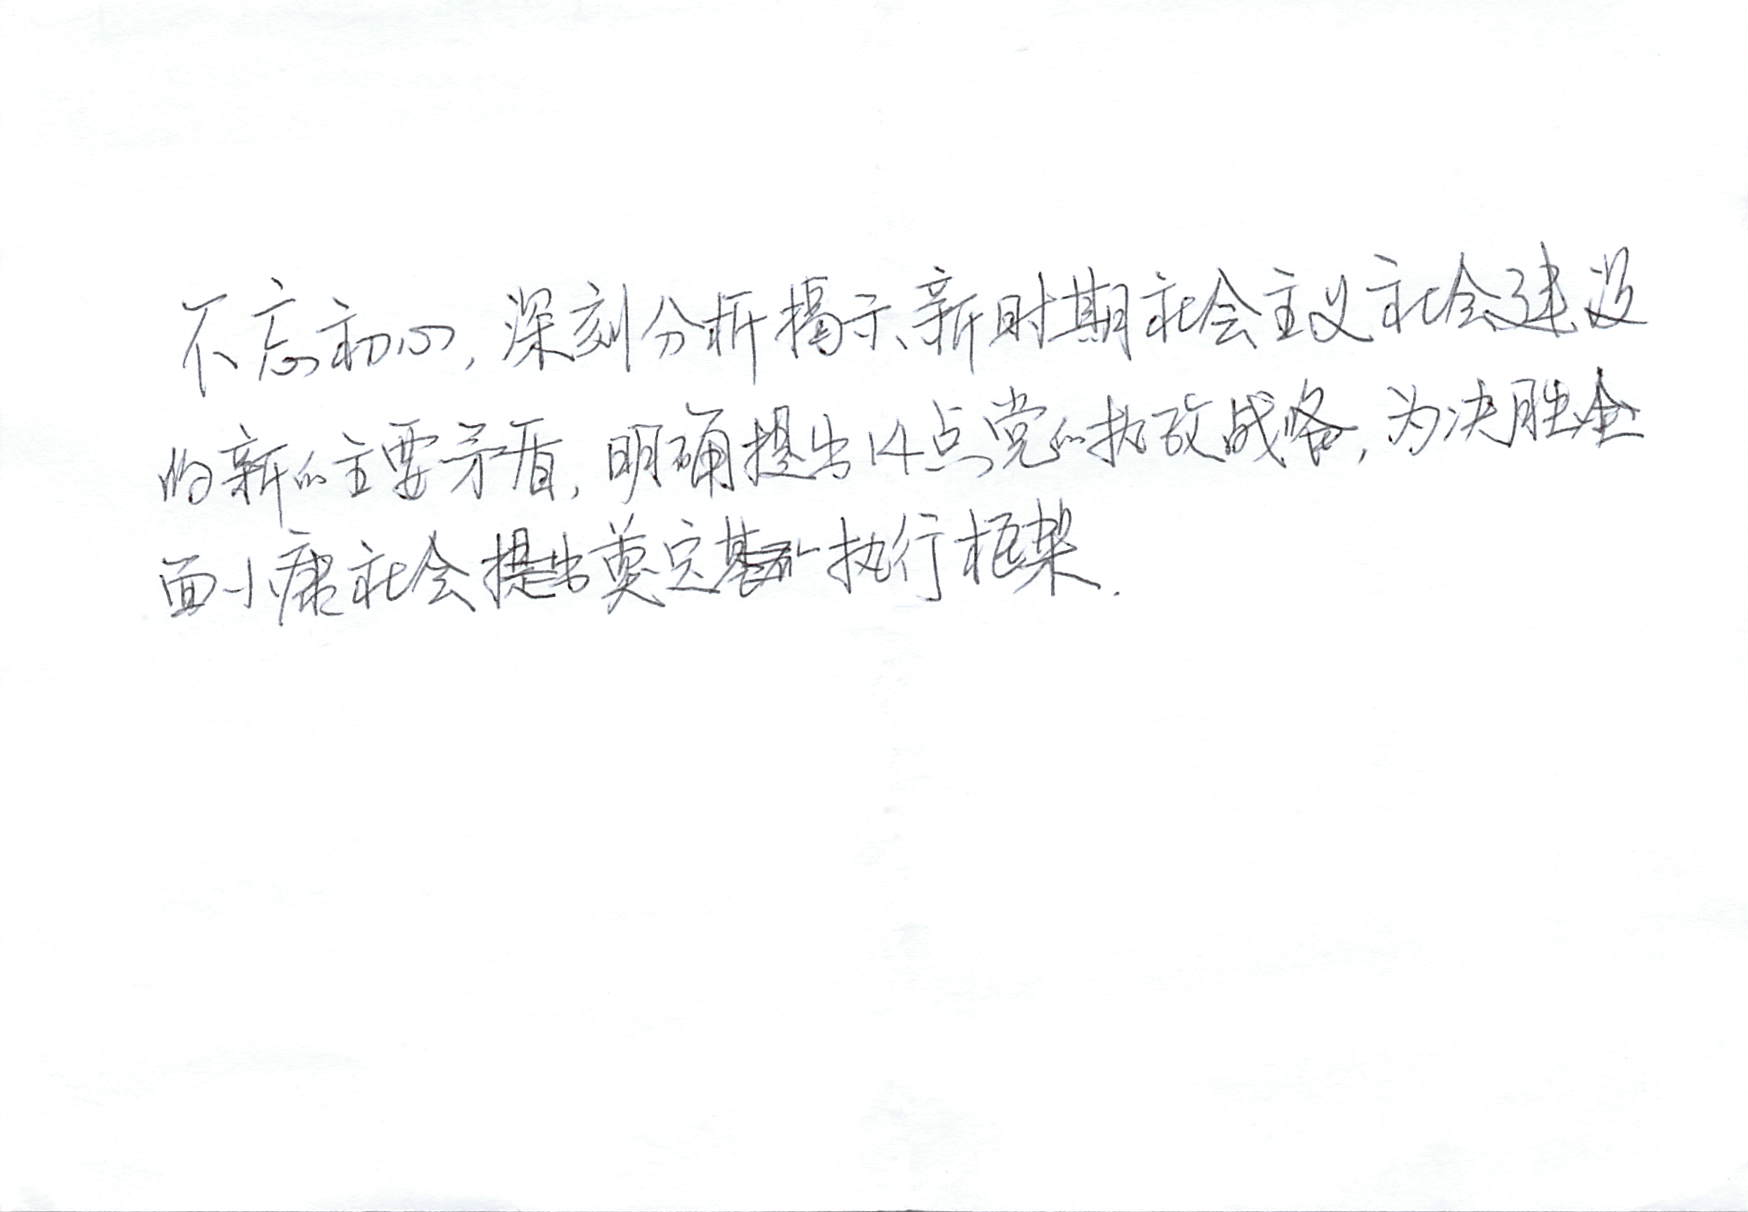 不忘初心,深刻分析揭示新时期社会主义社会建设
的新的主要矛盾,明确提出14点党的执政战略,为决胜全
面小康社会提出奠定基础执行框架.